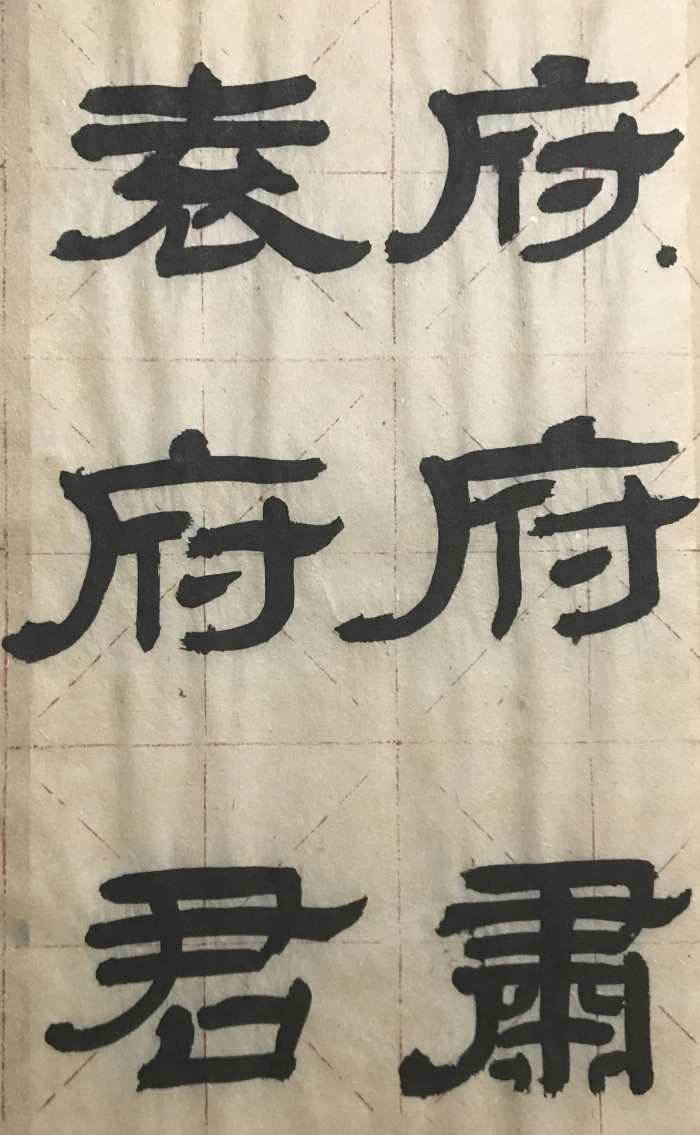 府府肅
袁府君